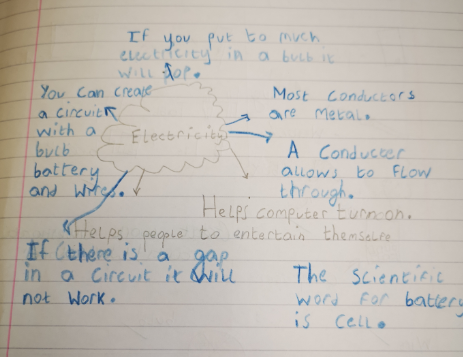 If you put to much
electricity in a bulb it
will pop.
You can create
a circuit
with a
bulb
battery
and wires.
Electricity
Most conductors
are metal.
A conductor
allows to flow
through.
Helps computer turn on.
Helps people to entertain themselve
If there is a gap
in a circuit it will
not work.
The scientific
word for battery
is cell.